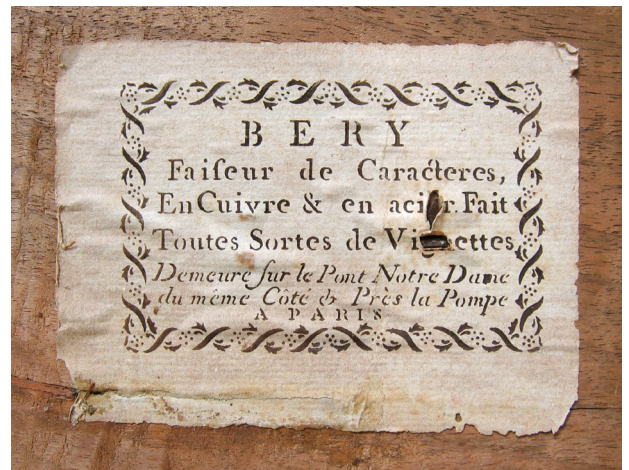 BERY
Faiſeur de Caracteres,
En Cuivre & en acier. Fait
Toutes Sortes de Vignettes
Demeure ſur le Pont Notre Dame
du même Côté & Près la Pompe
A PARIS